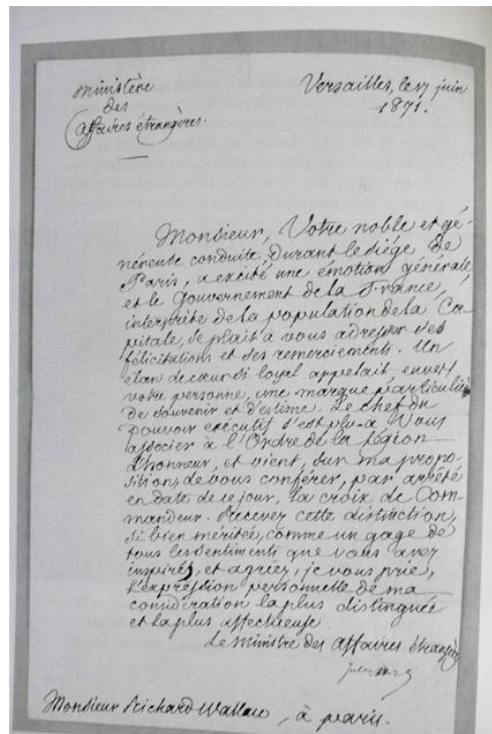 Ministère
des
affaires étrangères.
Versailles, le 17 juin
1871.
Monsieur, Votre noble et gé-
néreuse conduite, durant le siége de
Paris, a excité une émotion générale
et le Gouvernement de la France,
interprète de la population de la Ca-
pitale, se plait à vous adresser ses
félicitations et ses remerciements. Un
élan de cœur si loyal appelait envers
votre personne, une marque particulière
de souvenir et d'estime. Le chef du
pouvoir exécutif s'est plu à vous
associer à l'Ordre de la Légion
d'honneur, et vient, sur ma propo-
sition, de vous conférer, par arrêté
en date de ce jour, la croix de Com-
mandeur. Recevez cette distinction,
si bien méritée, comme un gage de
tous les sentiments que vous avez
inspirés, et agréez, je vous prie,
l'expression personnelle de ma
considération la plus distinguée
et la plus affectueuse.
Le Ministre des affaires étrangères
Monsieur Richard Wallace, à paris.